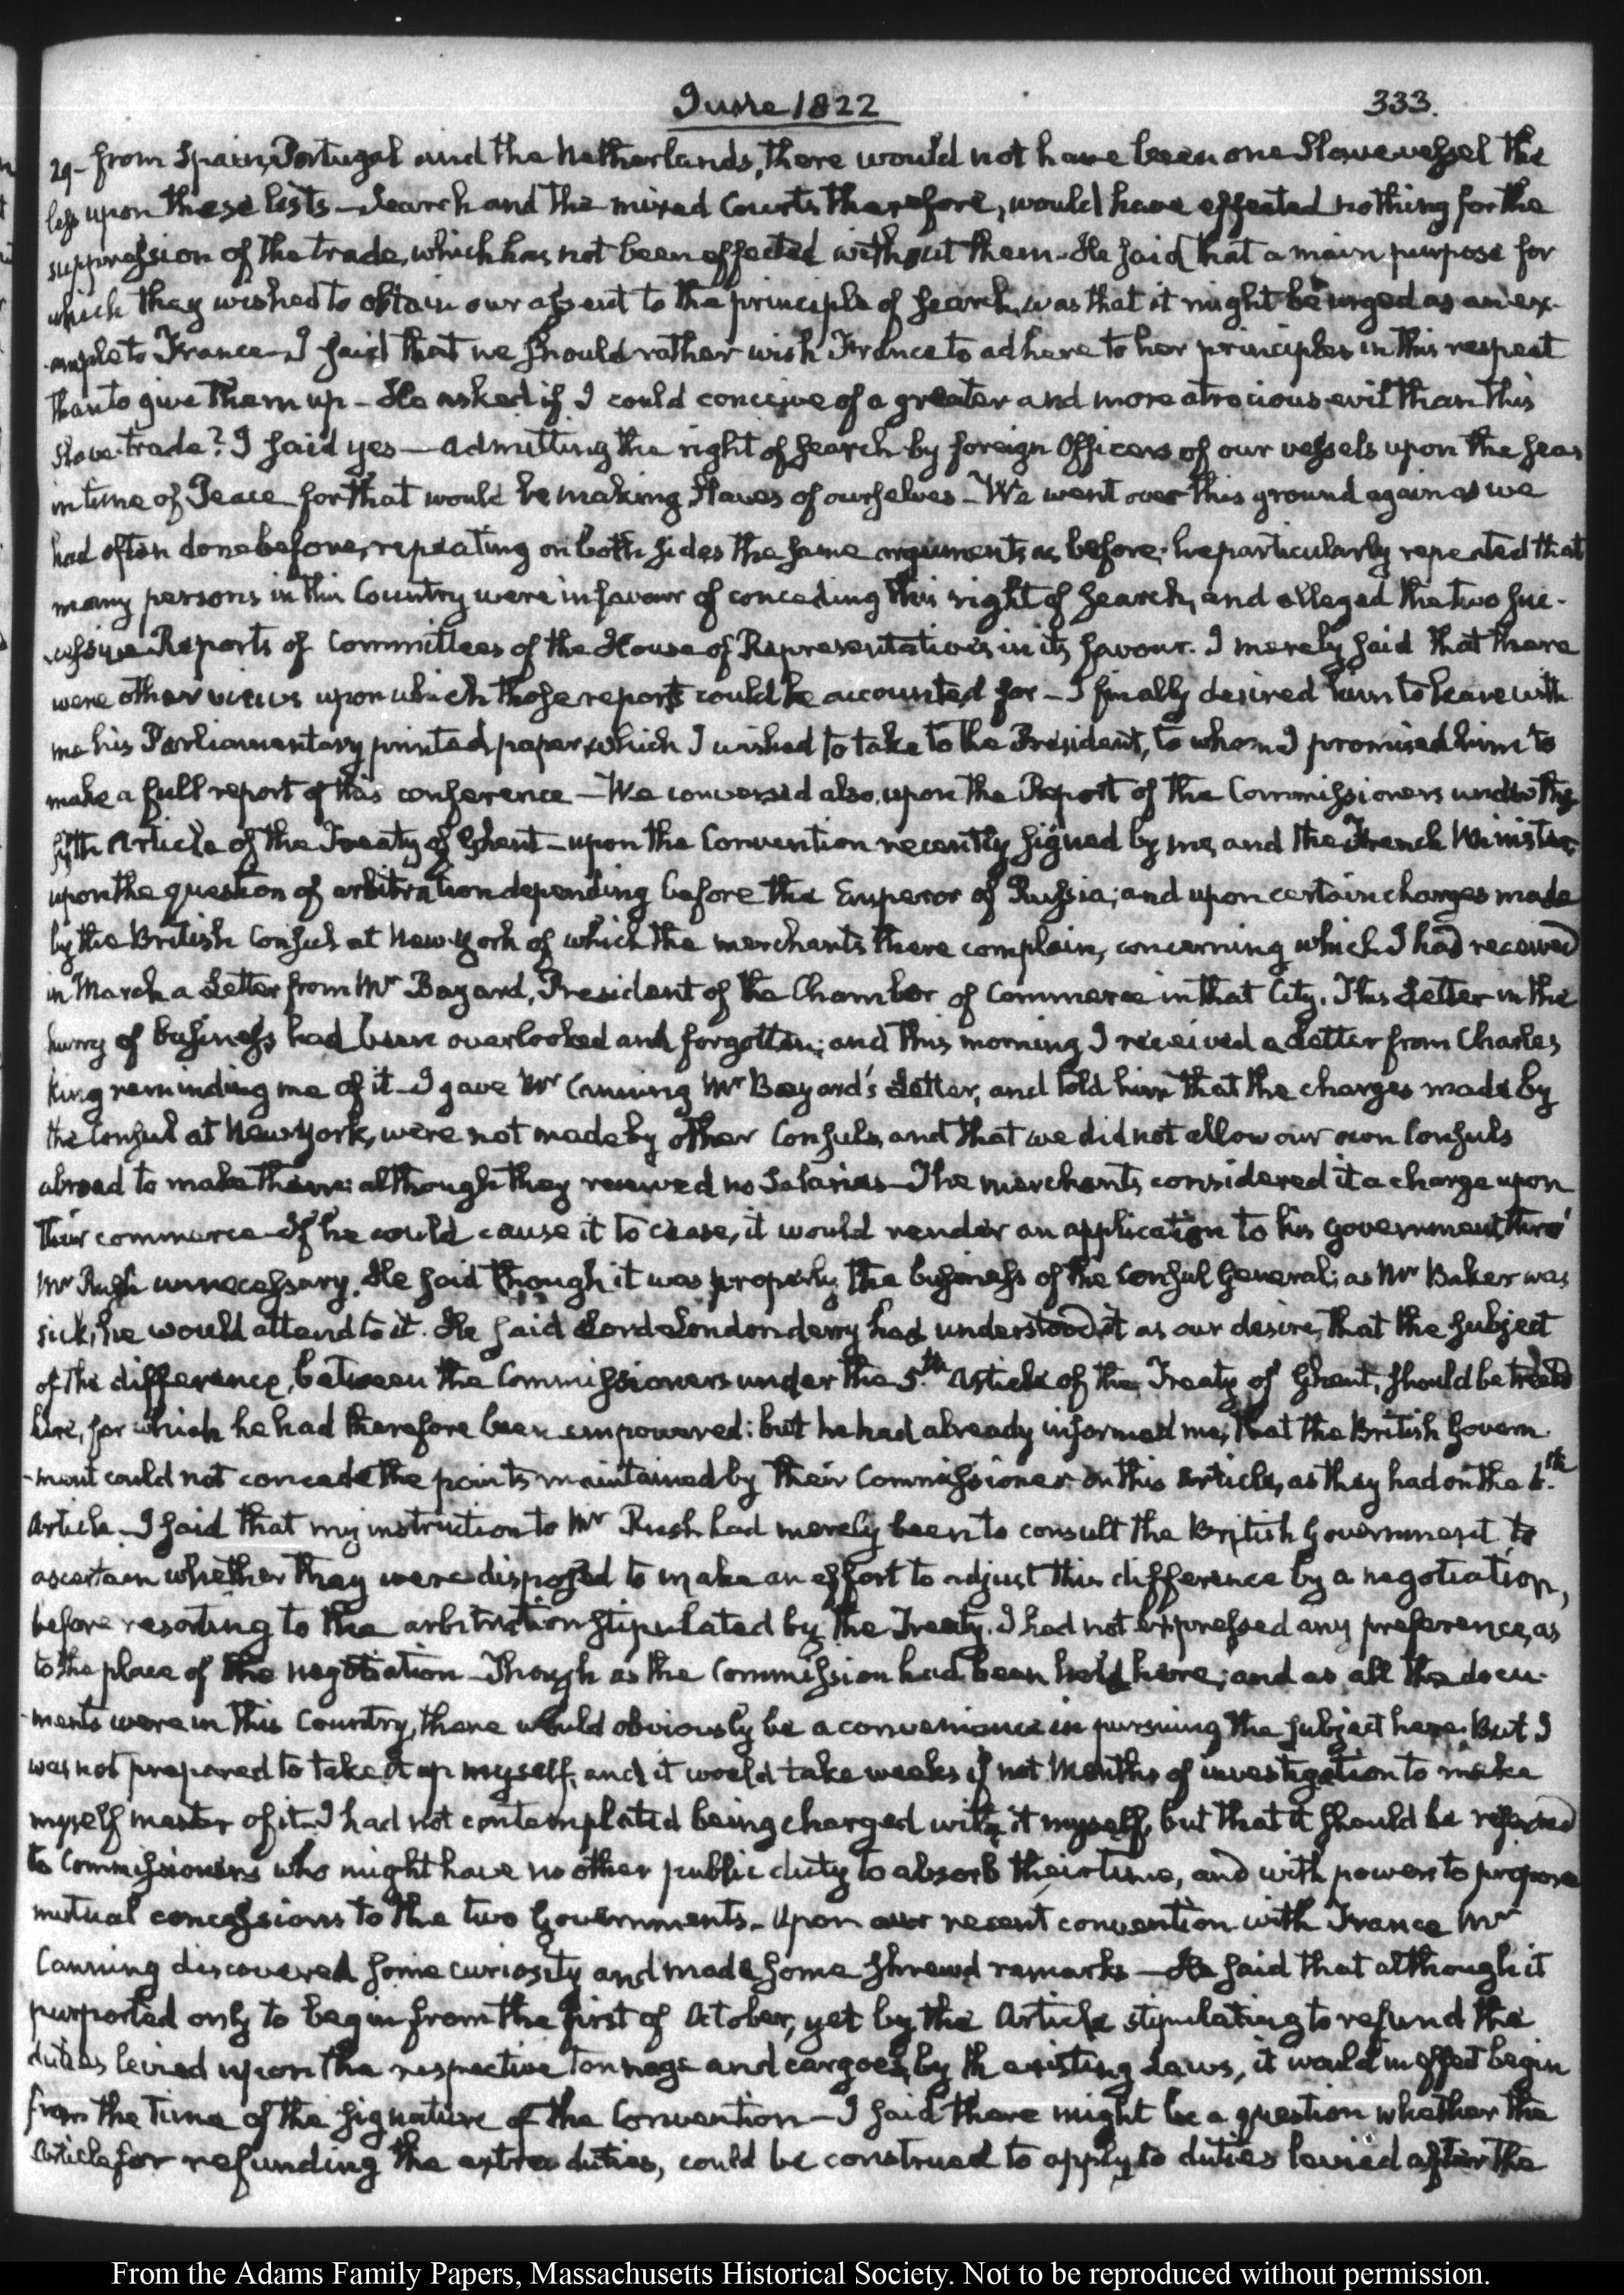 June 1822
333.
29- from Spain, Portugal and the Netherlands, there would not have been one Slave vessel the
less upon these lists—Search and the mixed Courts therefore, would have effected nothing for the
suppression of the trade, which has not been effected without them—He said that a main purpose for
which they wished to obtain our assent to the principle of search, was that it might be urged as an ex-
-ample to France—I said that we should rather wish France to adhere to her principles in this respect
than to give them up—He asked if I could conceive of a greater and more atrocious evil than this
slave-trade? I said yes—admitting the right of search by foreign Officers of our vessels upon the seas
in time of Peace for that would be making Slaves of ourselves—We went over this ground again as we
had often done before, repeating on both sides the same arguments as before. he particularly repeated that
many persons in this Country were in favour of conceding this right of search, and alleged the two suc-
-cessive Reports of Committees of the House of Representatives in its favour. I merely said that there
were other views upon which those reports could be accounted for—I finally desired him to leave with
me his Parliamentary printed paper, which I wished to take to the President, to whom I promised him to
make a full report of this conference—We conversed also, upon the Report of the Commissioners under the
fifth Article of the Treaty of Ghent—upon the Convention recently signed by me, and the French Minister
upon the question of arbitration depending before the Emperor of Russia; and upon certain charges made
by the British Consul at New-York of which the merchants there complain, concerning which I had received
in March a Letter from Mr Bayard, President of the Chamber of Commerce in that City. This Letter in the
hurry of business had been overlooked and forgotten; and this morning I received a Letter from Charles
King reminding me of it—I gave Mr Canning Mr Bayard's Letter, and told him that the charges made by
the Consul at New York, were not made by other Consuls, and that we did not allow our own Consuls
abroad to make them: although they received no Salaries—The merchants considered it a charge upon
their commerce—If he could cause it to cease, it would render an application to his Government, thro'
Mr Rush unnecessary. He said though it was properly the business of the Consul General; as Mr Baker was
sick, he would attend to it. He said Lord Londonderry had understood it as our desire, that the subject
of the difference, between the Commissioners under the 5.th Article of the Treaty of Ghent, should be treated
here, for which he had therefore been empowered: but he had already informed me, that the British Govern-
-ment could not concede the points maintained by their Commissioner on this Article, as they had on the 6.th
Article—I said that my instruction to Mr Rush had merely been to consult the British Government, to
ascertain whether they were disposed to make an effort to adjust this difference by a negotiation,
before resorting to the arbitration stipulated by the Treaty. I had not expressed any preference, as
to the place of the negotiation—Though as the Commission had been held here; and as all the docu-
-ments were in this Country, there would obviously be a convenience in pursuing the subject here. But I
was not prepared to take it up myself, and it would take weeks if not Months of investigation to make
myself master of it—I had not contemplated being charged with it myself, but that it should be referred
to Commissioners who might have no other public duty to absorb their time, and with power to propose
mutual concessions to the two Governments—Upon our recent convention with France Mr
Canning discovered some curiosity and made some shrewd remarks—He said that although it
purported only to begin from the first of October, yet by the Article stipulating to refund the
duties levied upon the respective tonnage and cargoes, by th existing Laws, it would in effect begin
from the time of the signature of the Convention—I said there might be a question whether the
Article for refunding the extra duties, could be construed to apply to duties levied after the
From the Adams Family Papers, Massachusetts Historical Society. Not to be reproduced without permission.